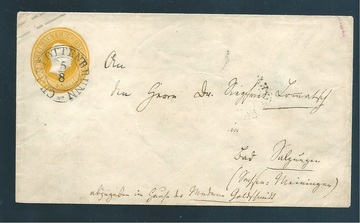 CHARLOTTENBRUNN
5
8
An
den Herrn Dr. Siegfried Lomatsch
in
Bad Salzungen
(Sachsen-Meiningen)
abzugeben im Hause der Madame Goldschmidt